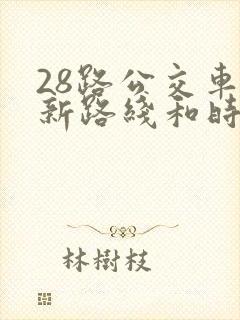 28路公交車
新路綫和時
林樹枝